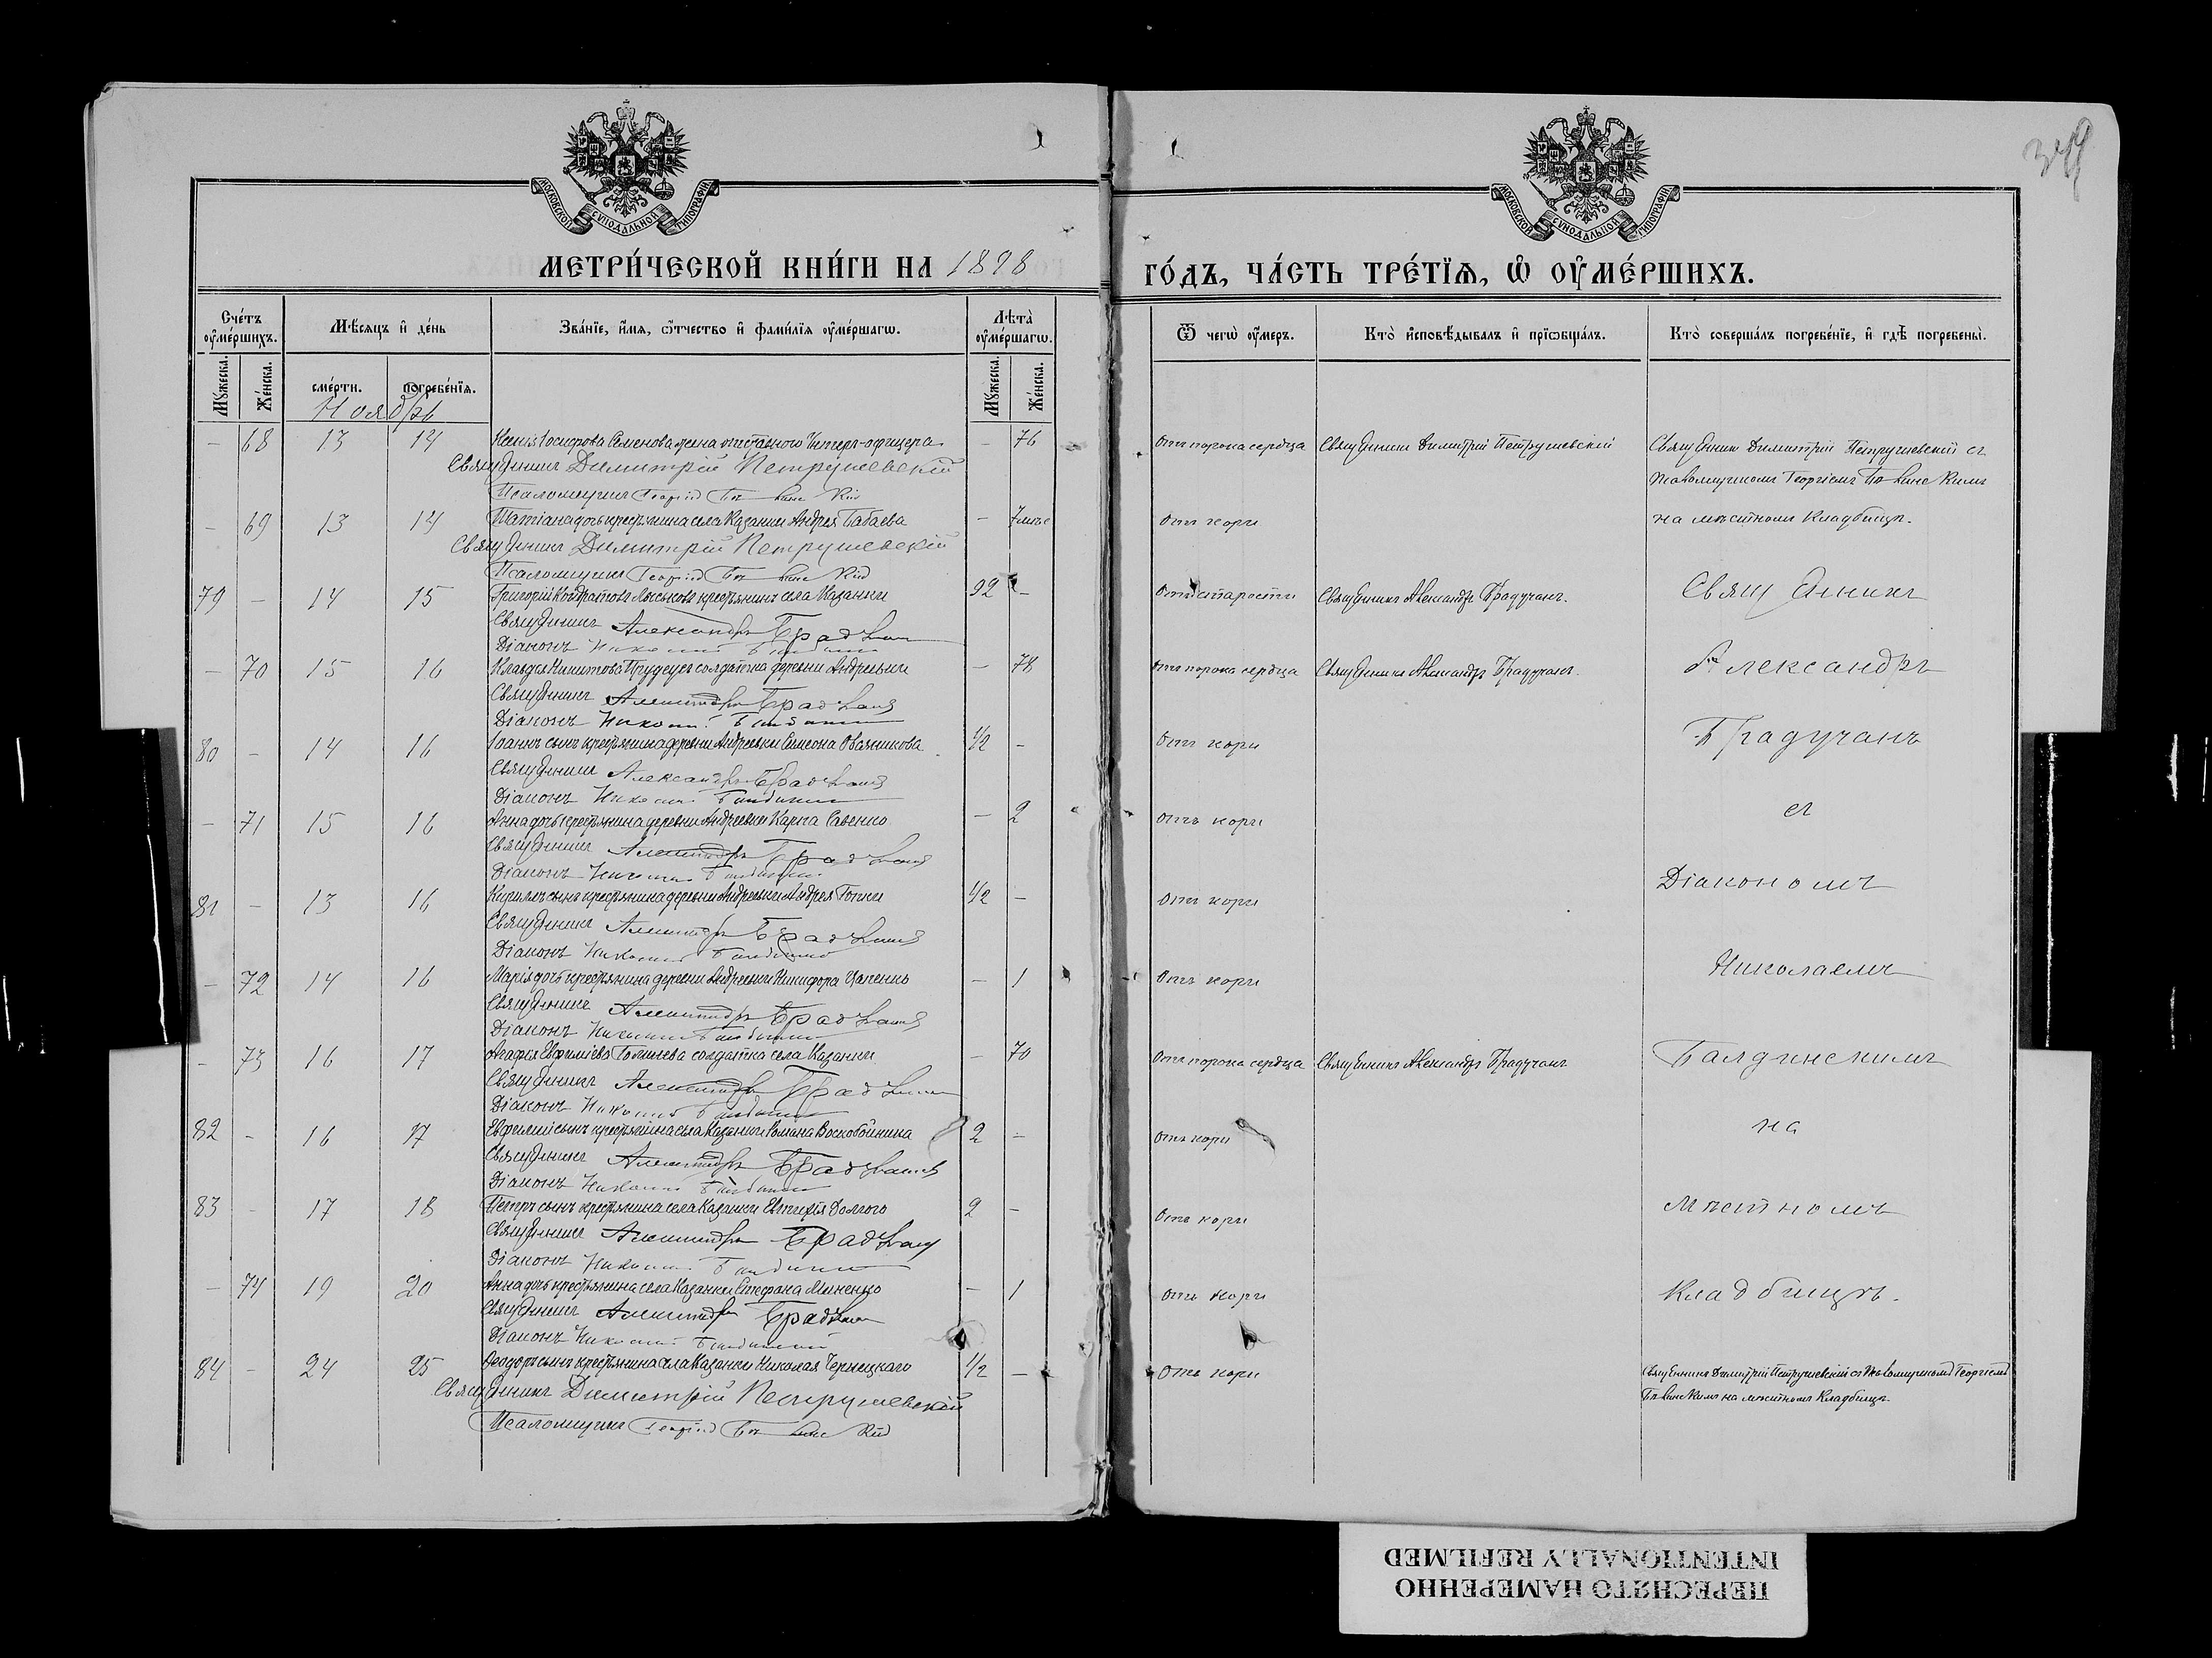 МОСКОВСКОЙ СѴНОДАЛЬНОЙ ТИПОГРАФІИ
МЕТРИ́ЧЕСКОЙ КНИ́ГИ НА 1898
Счéтъ ᲂу҆мéршихъ.
Мѣ́сяцъ и҆ дéнь
Звáнїе, и҆́мя, ѻ҆́тчество и҆ фамѝлїя ᲂу҆мéршагѡ.
Лѣтà ᲂу҆мéршагѡ.
Мꙋ́жеска.
Жéнска.
смéрти.
погребéнїя.
Мꙋ́жеска.
Жéнска.
Ноябрь
– 68 13 14 Ксенія Іосифова Семенова жена отставного Унтеръ-офицера – 76
Священникъ Димитрій Петрушевскій
Псаломщикъ Георгій
– 69 13 14 Татіана дочь крестьянина села Казанки Андрея Бабаева – 7 мѣс
Священникъ Димитрій Петрушевскій
Псаломщикъ Георгій
79 – 14 15 Григорій Кондратовъ Лыськовъ крестьянинъ села Казанки 92 –
Священникъ Александръ Брадучанъ
Діаконъ Николай Балдинскій
– 70 15 16 Клавдія Никитова солдатка деревни Андреевки – 78
Священникъ Александръ Брадучанъ
Діаконъ Николай Балдинскій
80 – 14 16 Іоаннъ сынъ крестьянина деревни Андреевки Симеона Овсянникова 1/2 –
Священникъ Александръ Брадучанъ
Діаконъ Николай Балдинскій
– 71 15 16 Анна дочь крестьянина деревни Андреевки Карпа Савенко – 2
Священникъ Александръ Брадучанъ
Діаконъ Николай Балдинскій
81 – 13 16 Кириллъ сынъ крестьянина деревни Андреевки Андрея 1/2 –
Священникъ Александръ Брадучанъ
Діаконъ Николай Балдинскій
– 72 14 16 Марія дочь крестьянина деревни Андреевки Никифора – 1
Священникъ Александръ Брадучанъ
Діаконъ Николай Балдинскій
– 73 16 17 Агафія Евфиміева солдатка села Казанки – 70
Священникъ Александръ Брадучанъ
Діаконъ Николай Балдинскій
82 – 16 17 Евфимій сынъ крестьянина села Казанки Романа Воскобойника 2 –
Священникъ Александръ Брадучанъ
Діаконъ Николай Балдинскій
83 – 17 18 Петръ сынъ крестьянина села Казанки Евтихія Долгого 2 –
Священникъ Александръ Брадучанъ
Діаконъ Николай Балдинскій
– 74 19 20 Анна дочь крестьянина села Казанки Стефана Миненко – 1
Священникъ Александръ Брадучанъ
Діаконъ Николай Балдинскій
84 – 24 25 Ѳеодоръ сынъ крестьянина села Казанки Николая Чернецкаго 1/2 –
Священникъ Димитрій Петрушевскій
Псаломщикъ Георгій
МОСКОВСКОЙ СѴНОДАЛЬНОЙ ТИПОГРАФІИ
ГÓДЪ, ЧÁСТЬ ТРÉТЇЯ, Ѡ҆ ОУ҆МÉРШИХЪ.
Ѿ чегѡ̀ ᲂу҆́меръ.
Ктò и҆сповѣ́дывалъ и҆ прїѡбщáлъ.
Ктò совершáлъ погребéнїе, и҆ гдѣ̀ погребены̀.
Отъ порока сердца Священникъ Димитрій Петрушевскій Священникъ Димитрій Петрушевскій съ
Псаломщикомъ Георгіемъ
Отъ кори на мѣстномъ Кладбищѣ.
Отъ старости Священникъ Александръ Брадучанъ. Священникъ
Отъ порока сердца Священникъ Александръ Брадучанъ. Александръ
Отъ кори Брадучанъ
Отъ кори съ
Діакономъ
Отъ кори
Николаемъ
Отъ кори
Отъ порока сердца Священникъ Александръ Брадучанъ Балдинскимъ
Отъ кори на
Отъ кори мѣстномъ
Отъ кори Кладбищѣ.
Отъ кори Священникъ Димитрій Петрушевскій съ Псаломщикомъ Георгіемъ
на мѣстномъ Кладбищѣ.
ПЕРЕСНЯТО НАМЕРЕННО
INTENTIONALLY REFILMED